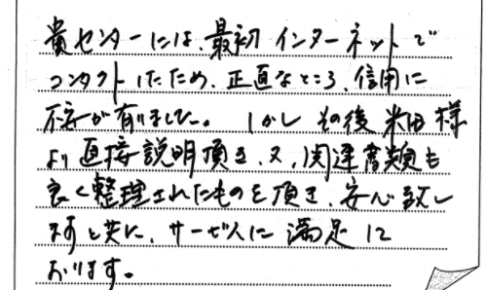 貴センターには、最初 インターネットで
コンタクトしたため、正直なところ、信用に
不安が有りました。 しかし その後 米田様
より 直接説明頂き、又、関連書類も
良く整理されたものを頂き、安心致し
ますと共に、サービスに 満足して
おります。